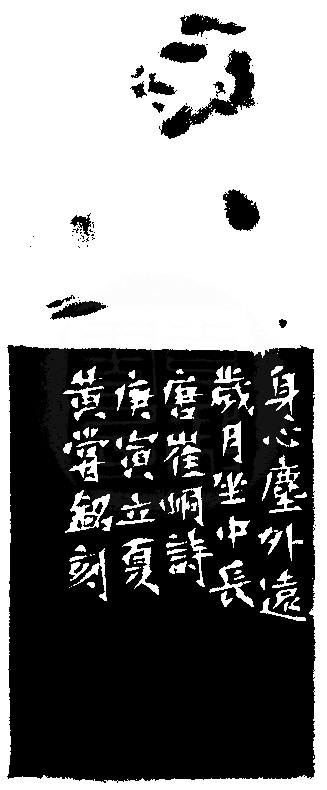 身心塵外遠
歲月坐中長
唐崔峒詩
庚寅立夏
黃嘗銘刻